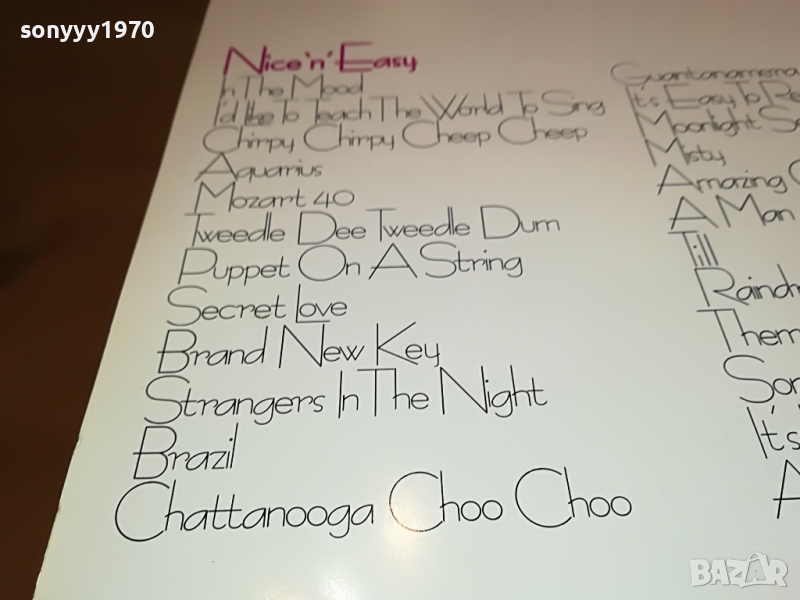 sonyyy1970
Nice 'n' Easy
In The Mood
I'd like To Teach The World To Sing
Chirpy Chirpy Cheep Cheep
Aquarius
Mozart 40
Tweedle Dee Tweedle Dum
Puppet On A String
Secret Love
Brand New Key
Strangers In The Night
Brazil
Chattanooga Choo Choo
Guantanamera
It's Easy To Re
Moonlight Se
Misty
Amazing
A Man
Till
Raindr
Them
Son
It's
A
BAZAR